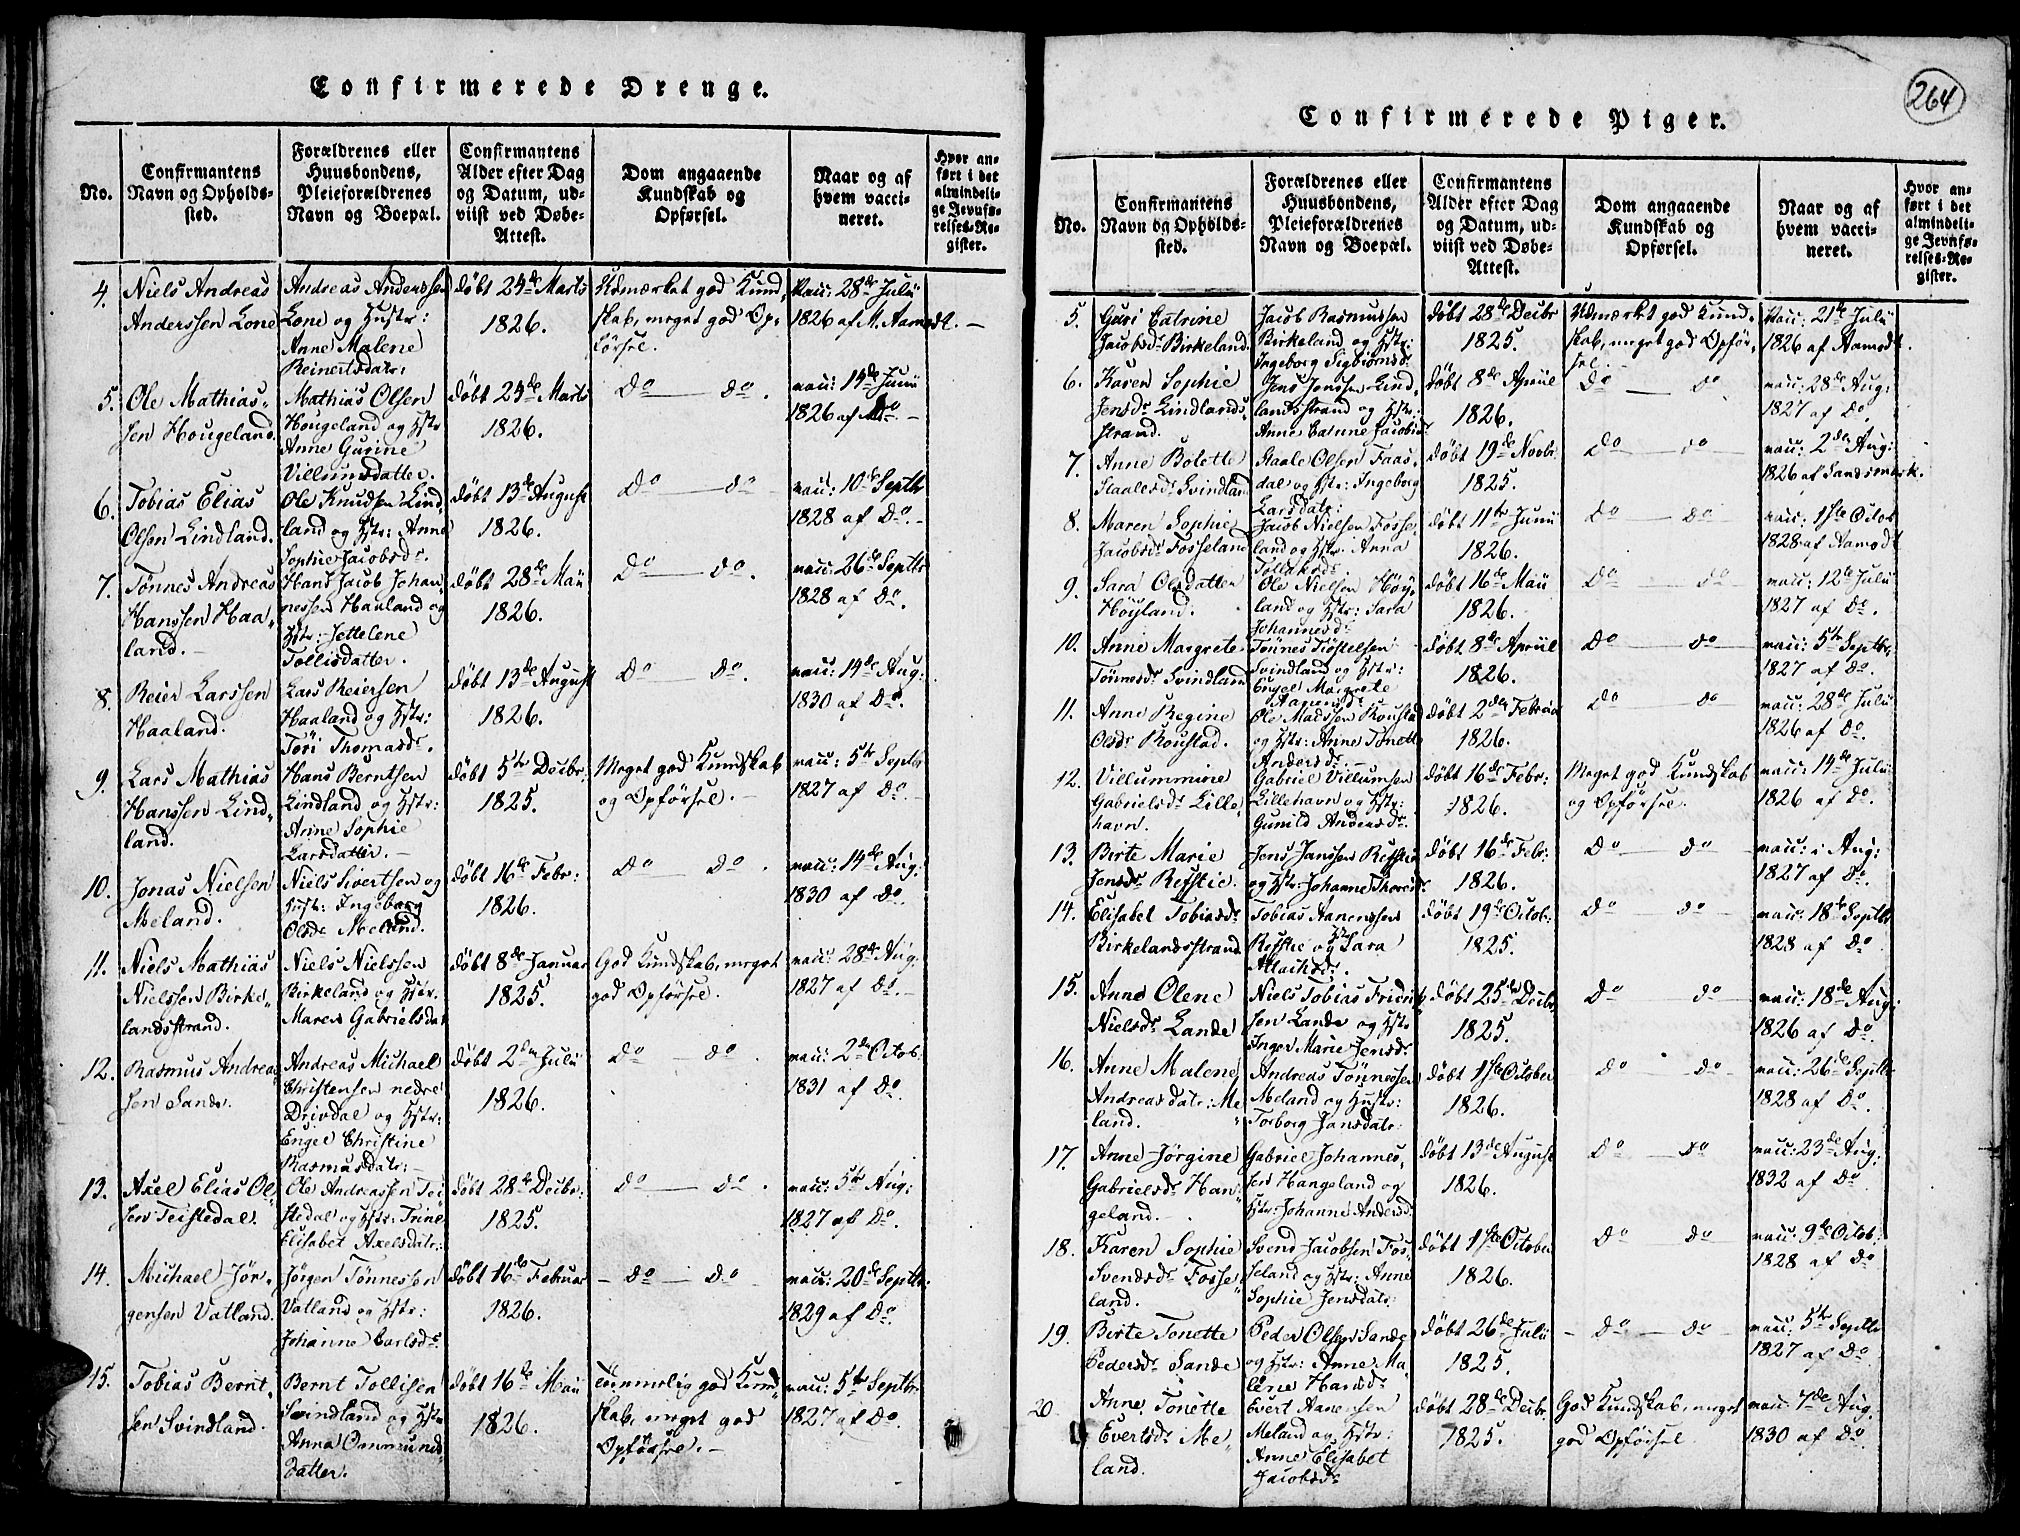 Confirmerede Drenge.
No.
Confirmantens
Navn og Opholds-
sted.
Forældrenes eller
Huusbondens,
Pleieforældrenes
Navn og Boepæl.
Confirmantens
Alder efter Dag
og Datum, ud-
viist ved Døbe-
Attest.
Dom angaaende
Kundskab og
Opførsel.
Naar og af
hvem vacci-
neret.
Hvor an-
ført i det
almindeli-
ge Jevnfø-
relses-Re-
gister.
4.
Niels Andreas
Anderssen Lone
Andreas Anderssen
Lone og Hustr:
Anne Malene
Reinertsdatr:
døbt 24de Marts
1826.
Udmærket god Kund-
skab, meget god Op-
førsel.
Vacc: 28de Julii
1826 af M. Aamodt. —
5.
Ole Mathias-
sen Hougeland.
Mathias Olsen
Hougeland og Hstr
Anne Gurine
Villumsdatter.
døbt 24de Marts
1826.
Do — do.
vacc: 14de Junii
1826 af Do. —
6.
Tobias Elias
Olsen Lindland.
Ole Knudsen Lind
land og Hstr: Anne
Sophie Jacobsdr.
døbt 13de August
1826.
Do — do
vacc: 10de Septbr
1828 af Do. —
7.
Tønnes Andreas
Hanssen Haa-
land. —
Hans Jacob Johan-
nessen Haaland og
Hstr: Jettelene
Tollisdatter.
døbt 28de Maii
1826.
Do — do.
vacc: 26de Septbr
1828 af Do.
8.
Reier Larssen
Haaland.
Lars Reiersen
Haaland og Hstr:
Tori Thomasdr.
døbt 13de August
1826.
Do — Do.
vacc: 14de Aug:
1830 af Do.
9.
Lars Mathias
Hanssen Lind-
land.
Hans Berntsen
Lindland og Hstr:
Anne Sophie
Larsdatter. —
døbt 5te Decbr:
1825.
Meget god Kundskab
og Opførsel. —
vacc: 5te Septbr
1827 af Do. —
10.
Jonas Nielsen
Meland.
Niels Sivertsen og
Hustr: Ingeborg
Olsdr Meland.
døbt 16de Febr:
1826.
Do — Do.
vacc: 14de Aug:
1830 af Do.
11.
Niels Mathias
Nielssen Birke-
landsstrand.
Niels Nielssen
Birkeland og Hstr.
Maren Gabrielsdat
døbt 8de Januar
1825.
God Kundskab, meget
god Opførsel.
vacc: 28de Aug:
1827 af Do. —
12.
Rasmus Andreas
sen Sande.
Andreas Michael
Christensen nedre
Drivdal og Hstr:
Engel Christine
Rasmusdatr: —
døbt 2den Julii
1826.
Do — do.
vacc: 2den Octob:
1831 af Do.
13.
Axel Elias Ol-
sen Teistedal.
Ole Andreassen Tei
stedal og Hstr: Trine
Elisabet Axelsdatr:
døbt 28de Decbr:
1825.
Do — do.
vacc: 5te Aug:
1827 af Do.
14.
Michael Jør-
gensen Vatland.
Jørgen Tønnessen
Vatland og Hstr:
Johanne Carlsdr.
døbt 16de Februar
1826.
— do — do.
vacc: 20de Septbr:
1829 af Do.
15.
Tobias Bernt-
sen Svindland.
Bernt Tollisen
Svindland og Hstr
Anna Ommunds-
datter.
døbt 16de Maii
1826.
Temmelig god Kund-
skab, meget god
Opførsel. —
vacc: 5te Septbr
1827 af Do.
264
Confirmerede Piger.
No.
Confirmantens
Navn og Opholds-
sted.
Forældrenes eller
Huusbondens,
Pleieforældrenes
Navn og Boepæl.
Confirmantens
Alder efter Dag
og Datum, ud-
viist ved Døbe-
Attest.
Dom angaaende
Kundskab og
Opførsel.
Naar og af
hvem vacci-
neret.
Hvor an-
ført i det
almindeli-
ge Jevnfø-
relses-Re-
gister.
5.
Guri Catrine
Jacobsdr Birkeland.
Jacob Rasmussen
Birkeland og Hstr:
Ingeborg Sigbiørnsdr
døbt 28de Decbr
1825.
Udmærket god Kund-
skab, meget god Opfør-
sel.
Vacc: 21de Julii
1826 af Aamodt.
6.
Karen Sophie
Jensdr Lindlands-
strand.
Jens Jenssen Lind-
landsstrand og Hstr:
Anne Catrine Jacobsdr
døbt 8de Apriil
1826.
Do — Do
vacc: 28de Aug:
1827 af Do
7.
Anne Bolette
Staalesdr Svindland
Staale Olsen Faas-
dal og Hstr: Ingeborg
Larsdatr:
døbt 19de Novbr
1825.
Do — do
vacc: 2den Aug:
1826 af Sandsmark.
8.
Maren Sophie
Jacobsdr Fosseland
Jacob Nielsen Fosse-
land og Hstr: Anna
Tollaksdr.
døbt 11te Junii
1826.
Do — Do
vacc: 1ste Octob
1828 af Aamodt
9.
Sara Olsdatter
Høyland.
Ole Nielsen Høy-
land og Hstr: Sara
Johannesdr
døbt 16de Maii
1826.
Do — Do
vacc: 12te Julii
1827 af Do.
10.
Anne Margrete
Tønnesdr Svindland
Tønnes Tiøstelsen
Svindland og Hstr:
Engel Margrete
Aanensdr
døbt 8de Apriil
1826.
Do — do
vacc: 5te Septbr.
1827 af Do.
11.
Anne Regine
Olsdr Roustad.
Ole Madssen Roustad
og Hstr: Anne Tonette
Andersdr. —
døbt 2den Februar
1826.
Do — do
vacc: 28de Julii
1826 af Do.
12.
Villummine
Gabrielsdr Lille
havn.
Gabriel Villumsen
Lillehavn og Hstr:
Gunild Andersdr.
døbt 16de Febr:
1826.
Meget god Kundskab
og Opførsel.
vacc: 14de Julii
1826 af Do.
13.
Birte Marie
Jensdr Refstie.
Jens Janssen Refstie
og Hstr: Johanne Thoresdr.
døbt 16de Febr:
1826.
Do — do —
vacc: i Aug:
1827 af Do.
14.
Elisabet Tobiasdr
Birkelandsstrand
Tobias Aanenssen
Refstie og Hstr Sara
Attachsdr.
døbt 19de Octob:
1825.
Do — do —
vacc: 18de Septbr
1828 af Do
15.
Anne Olene
Nielsdr Lande
Niels Tobias Fridri
sen Lande og Hstr
Inger Marie Jensdr
døbt 25de Decbr.
1825.
Do — Do
vacc: 18de Aug:
1826 af Do.
16.
Anne Malene
Andreasdatr: Me-
land.
Andreas Tønnessen
Meland og Hustr:
Torborg Jansdatr:
døbt 1ste October
1826.
Do — Do —
vacc: 26de Septbr
1828 af Do.
17.
Anne Jørgine
Gabrielsdr Han-
geland. —
Gabriel Johannes-
sen Hangeland og
Hstr: Johanne Andersdr.
døbt 13de August
1826.
Do — Do
vacc: 23de Aug:
1832 af Do
18.
Karen Sophie
Svendsdr Fosse-
land.
Svend Jacobsen Fos-
seland og Hstr: Anne
Sophie Jensdatr:
døbt 1ste October
1826.
Do — do —
vacc: 9de Octob:
1828 af Do
19.
Birte Tonette
Pedersdr Sande
Peder Olsen Sande
og Hstr: Anne Ma-
lene Hansdr
døbt 26de Julii
1825.
— Do — do —
vacc: 5te Septbr
1827 af Do
20
Anne Tonette
Evertsdr Me-
land.
Evert Aanensen
Meland og Hstr:
Anne Elisabet
Jacobsdr
døbt 28de Decbr.
1825.
God Kundskab, meget
god Opførsel
vacc: 7de Aug:
1830 af Do.